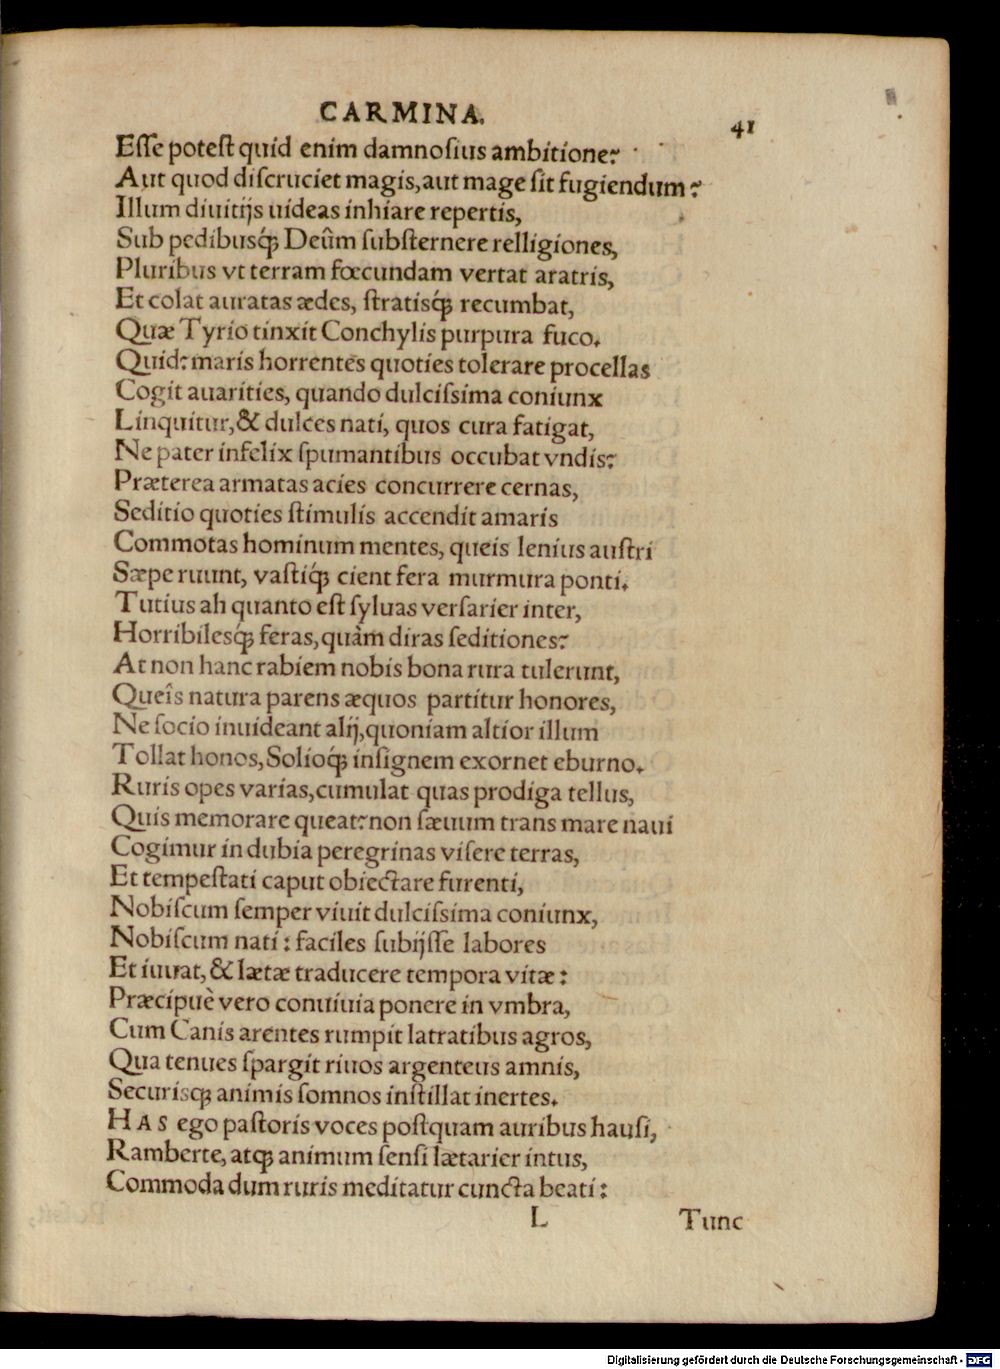 CARMINA. 41
Eſſe poteſt quid enim damnoſius ambitione?
Aut quod diſcruciet magis, aut mage ſit fugiendum?
Illum diuitijs uideas inhiare repertis,
Sub pedibusq́ꝫ Deûm ſubſternere relligiones,
Pluribus vt terram fœcundam vertat aratris,
Et colat auratas ædes, ſtratisq́ꝫ recumbat,
Quæ Tyrio tinxit Conchylis purpura fuco.
Quid? maris horrentes quoties tolerare procellas
Cogit auarities, quando dulciſsima coniunx
Linquitur, & dulces nati, quos cura fatigat,
Ne pater infelix ſpumantibus occubat vndis?
Præterea armatas acies concurrere cernas,
Seditio quoties ſtimulis accendit amaris
Commotas hominum mentes, queis lenius auſtri
Sæpe ruunt, vaſtiq́ꝫ cient fera murmura ponti.
Tutius ah quanto eſt ſyluas verſarier inter,
Horribilesq́ꝫ feras, quàm diras ſeditiones?
At non hanc rabiem nobis bona rura tulerunt,
Queîs natura parens æquos partitur honores,
Ne ſocio inuideant alij, quoniam altior illum
Tollat honos, Solioq́ꝫ inſignem exornet eburno.
Ruris opes varias, cumulat quas prodiga tellus,
Quis memorare queat? non ſæuum trans mare naui
Cogimur in dubia peregrinas viſere terras,
Et tempeſtati caput obiectare furenti,
Nobiſcum ſemper viuit dulciſsima coniunx,
Nobiſcum nati: faciles ſubijſſe labores
Et iuuat, & lætæ traducere tempora vitæ:
Præcipuè vero conuiuia ponere in vmbra,
Cum Canis arentes rumpit latratibus agros,
Qua tenues ſpargit riuos argenteus amnis,
Securisqꝫ animis ſomnos inſtillat inertes.
HAS ego paſtoris voces poſtquam auribus hauſi,
Ramberte, atqꝫ animum ſenſi lætarier intus,
Commoda dum ruris meditatur cuncta beati:
L Tunc
Digitalisierung gefördert durch die Deutsche Forschungsgemeinschaft - DFG